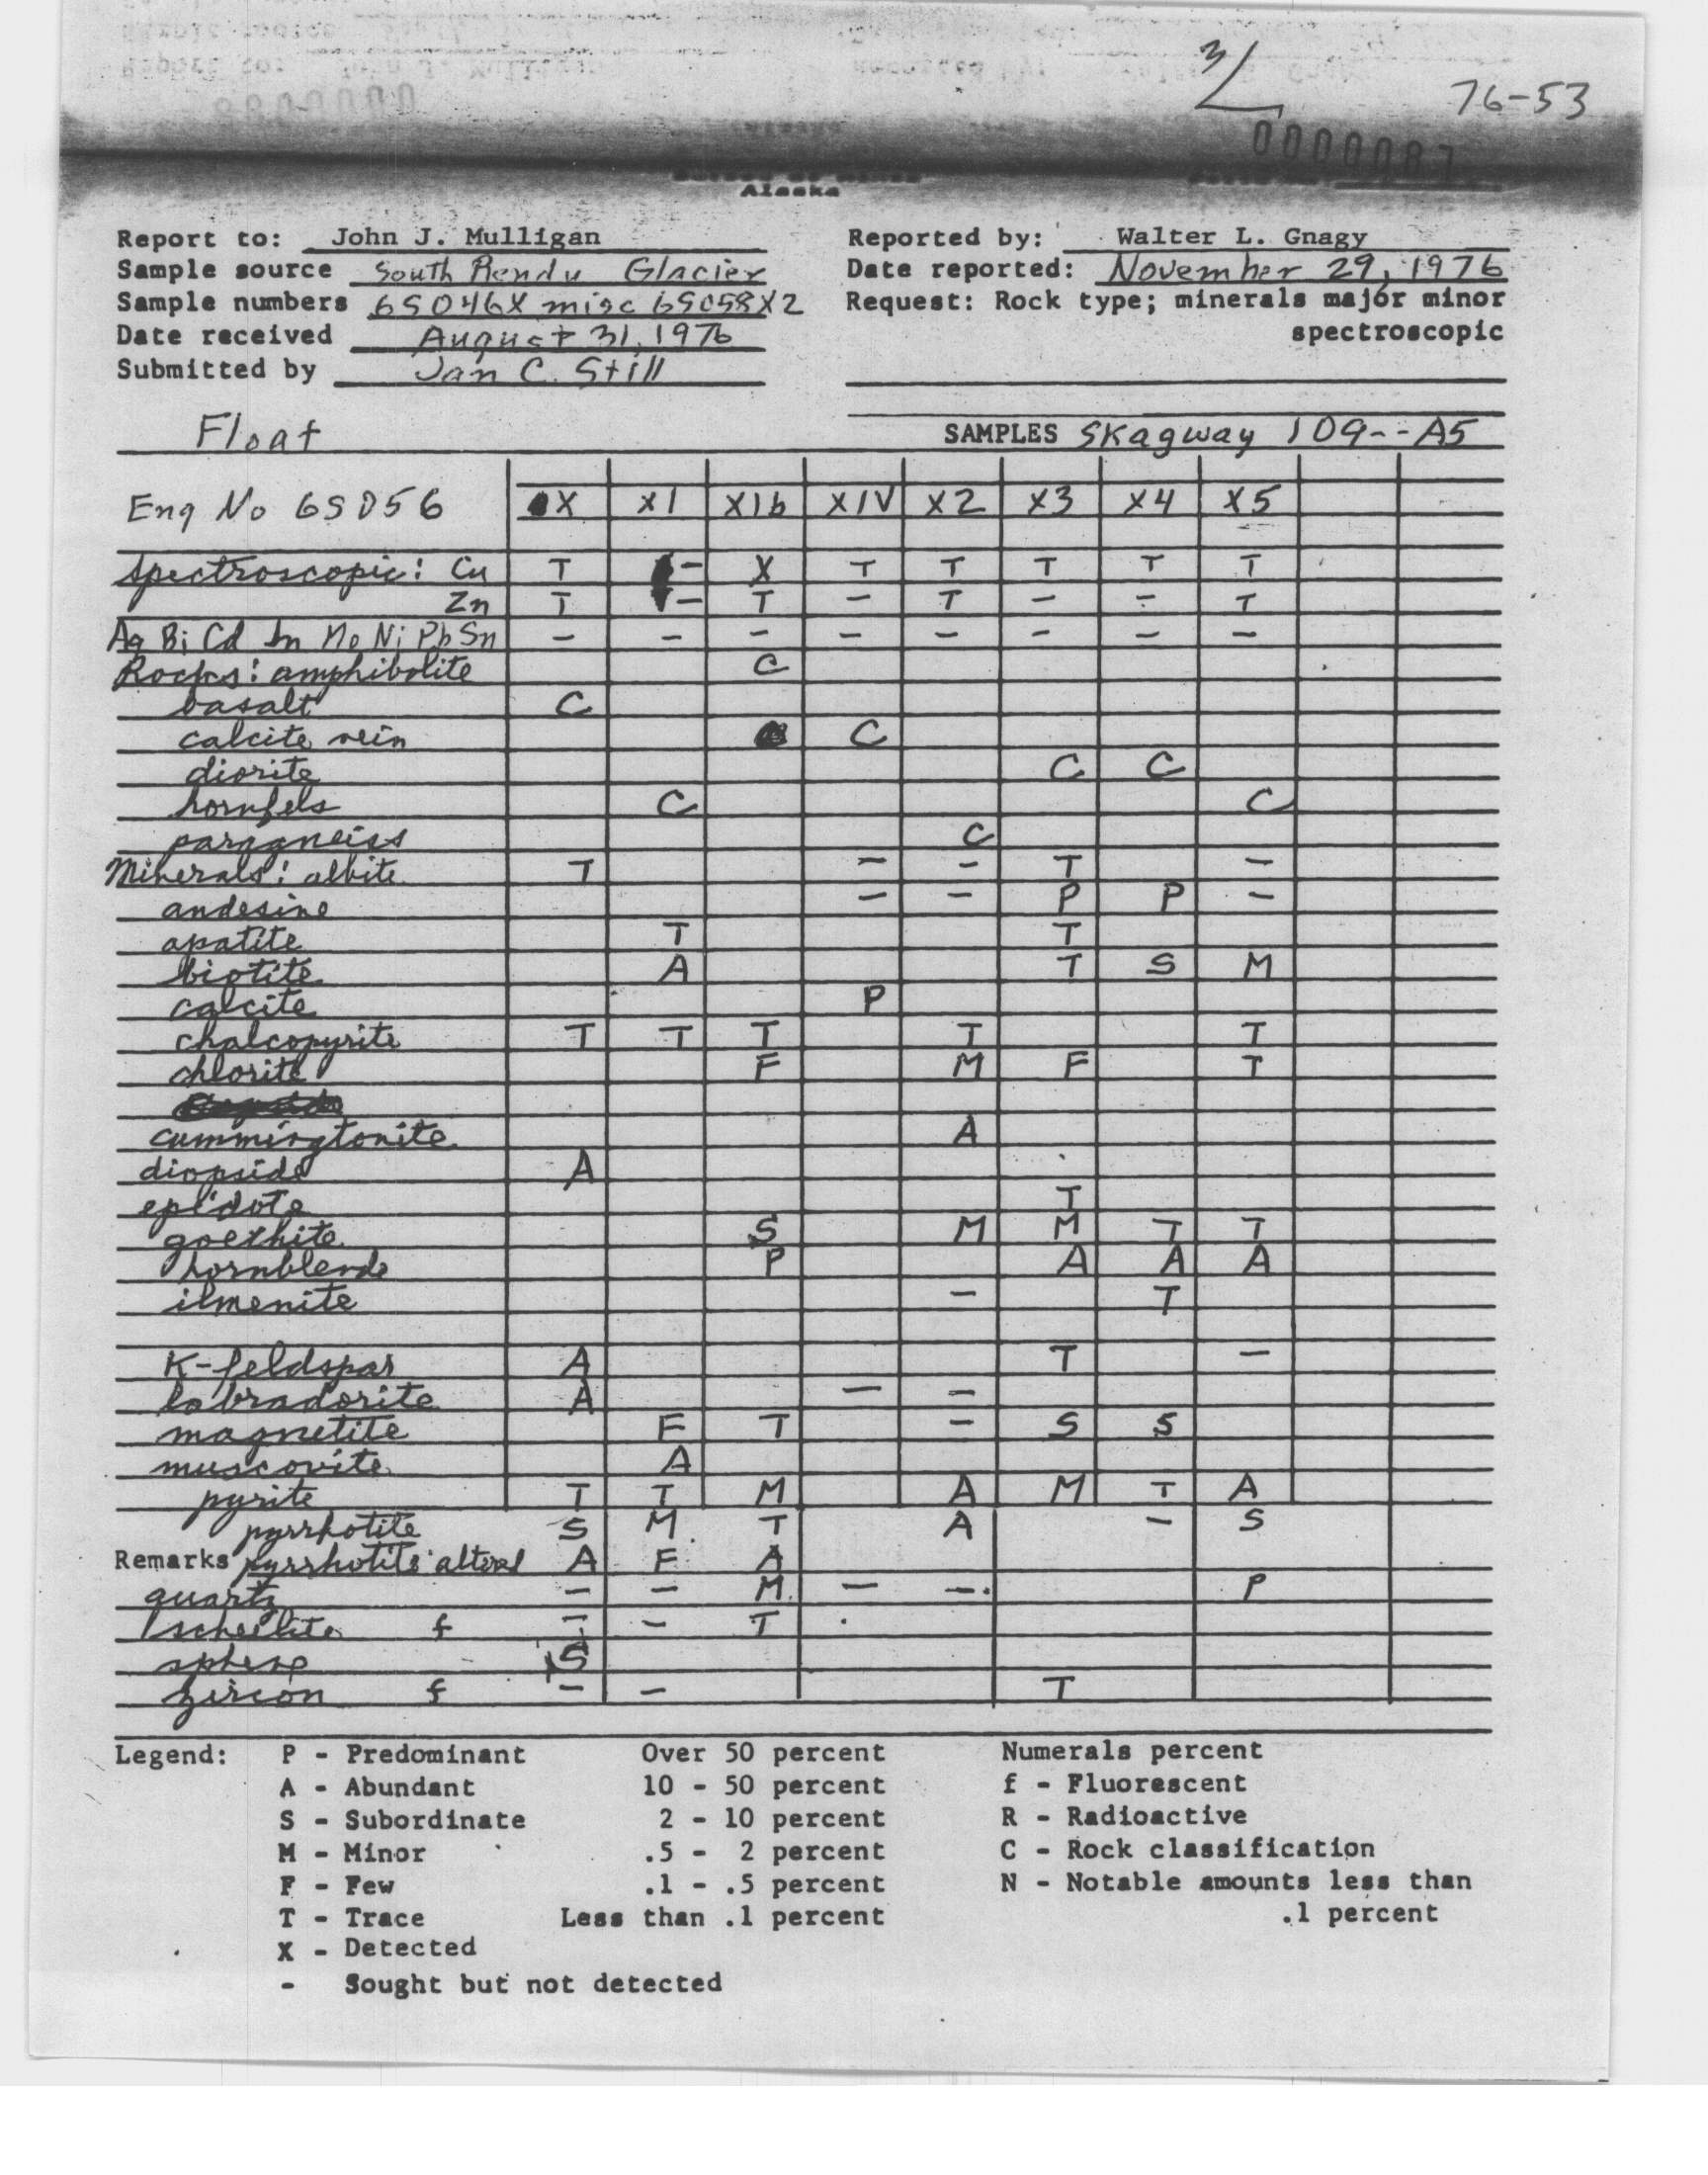 3/ 76-53
0000087
Alaska
Report to: John J. Mulligan Reported by: Walter L. Gnagy
Sample source South Rendu Glacier Date reported: November 29, 1976
Sample numbers 6S046X misc 6S058X2 Request: Rock type; minerals major minor
Date received August 31, 1976 spectroscopic
Submitted by Jan C. Still
Float SAMPLES Skagway 109--A5
Eng No 6S056 X X1 X1b X1V X2 X3 X4 X5
Spectroscopic: Cu T - X T T T T T
Zn T - T - T - - T
Ag Bi Cd In Mo Ni Pb Sn - - - - - - - -
Rocks: amphibolite C
basalt C
calcite vein C
diorite C C
hornfels C C
paragneiss C
Minerals: albite T - - T -
andesine - - P P -
apatite T T
biotite A T S M
calcite P
chalcopyrite T T T T T
chlorite F M F T
cummingtonite A
diopside A
epidote T
goethite S M M T T
hornblende P A A A
ilmenite - T
K-feldspar A T -
labradorite A - -
magnetite F T - S S
muscovite A
pyrite T T M A M T A
pyrrhotite S M T A - S
Remarks pyrrhotite altered A F A
quartz - - M - - P
scheelite f - - T
sphene S
zircon f - - T
Legend: P - Predominant Over 50 percent Numerals percent
A - Abundant 10 - 50 percent f - Fluorescent
S - Subordinate 2 - 10 percent R - Radioactive
M - Minor .5 - 2 percent C - Rock classification
F - Few .1 - .5 percent N - Notable amounts less than
T - Trace Less than .1 percent .1 percent
X - Detected
- Sought but not detected